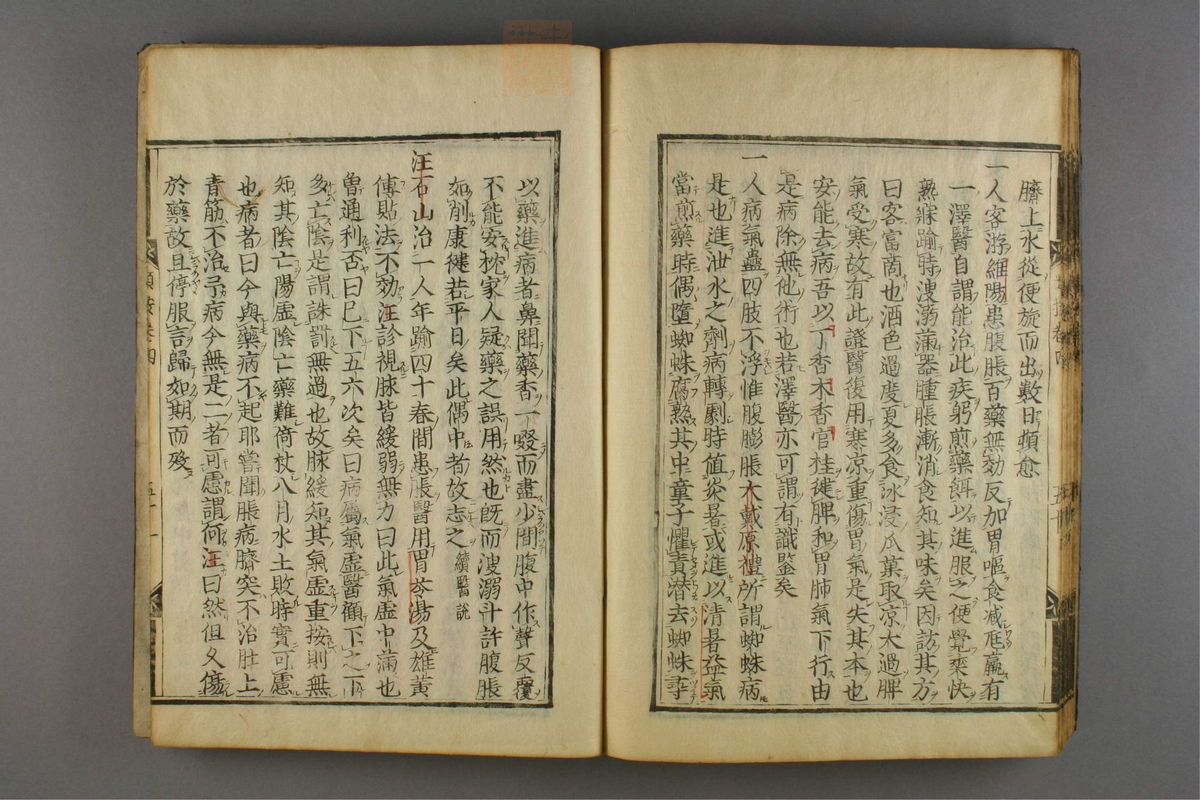 臍上水從便旋而出數日頓愈
一人客游維陽患腹脹百藥無効反加胃嘔食減尫羸有
一澤醫自謂能治此疾躬煎藥餌以進服之便覺爽快
熟寐踰時溲溺滿器腫脹漸消食知其味矣因訪其方
曰客富商也酒色過度夏多食冰浸瓜菓取凉太過脾
氣受寒故有此證醫復用寒凉重傷胃氣是失其本也
安能去病吾以丁香木香官桂健脾和胃肺氣下行由
是病除無他術也若澤醫亦可謂有識鑒矣
一人病氣蠱四肢不浮惟腹膨脹大戴原禮所謂蜘蛛病
是也進泄水之劑病轉劇時值炎暑或進以清暑益氣
當煎藥時偶墮蜘蛛腐熟其中童子懼責潜去蜘蛛尋
以藥進病者鼻聞藥香一啜而盡少間腹中作聲反覆
不能安枕家人疑藥之誤用然也旣而溲溺斗許腹脹
如削康健若平日矣此偶中者故志之 續醫說
汪石山治一人年踰四十春間患脹醫用胃苓湯及雄黄
傅貼法不効汪診視脉皆緩弱無力曰此氣虛中滿也
曾通利否曰已下五六次矣曰病屬氣虛醫顧下之下
多亡陰是謂誅罰無過也故脉緩知其氣虛重按則無
知其陰亡陽虛陰亡藥難倚杖八月水土敗時實可慮
也病者曰今與藥病不起耶嘗聞脹病臍突不治肚上
青筋不治予病今無是二者可慮謂何汪曰然但久傷
於藥故且停服言歸如期而歿